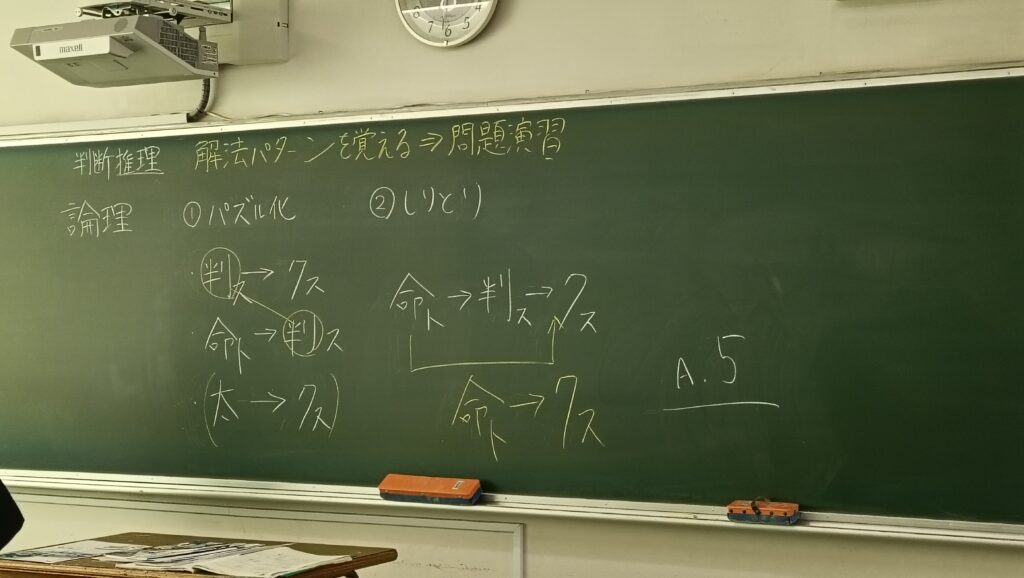 maxell
7 6 5
判断推理 解法パターンを覚える⇒問題演習
論理 ①パズル化 ②しりとり
・判ス→クス
命ト→判ス
・(太→クス)
命ト→判ス→クス
命ト→クス
A.5